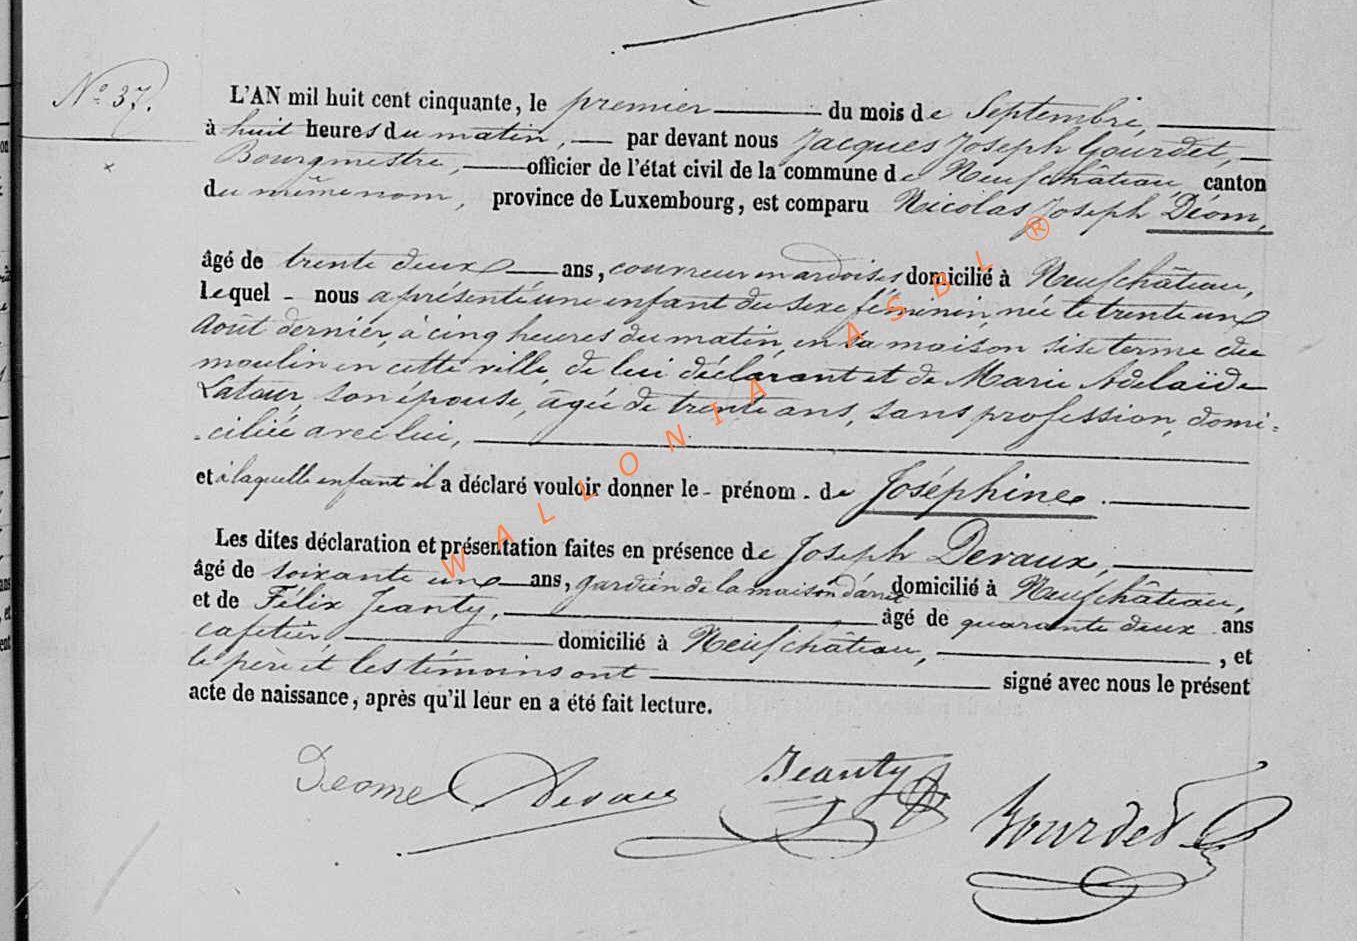 N° 37.
L'AN mil huit cent cinquante, le premier du mois de Septembre,
à huit heures du matin, par devant nous Jacques Joseph Gourdet,
Bourgmestre, officier de l'état civil de la commune de Neufchâteau, canton
du même nom, province de Luxembourg, est comparu Nicolas Joseph Déom,
âgé de trente deux ans, couvreur en ardoises domicilié à Neufchâteau,
lequel - nous a présenté une enfant du sexe féminin, née le trente un
Août dernier, à cinq heures du matin, en sa maison sise terme du
moulin en cette ville, de lui déclarant et de Marie Adelaïde
Latour, son épouse, âgée de trente ans, sans profession, domi-
-ciliée avec lui,
et à laquelle enfant il a déclaré vouloir donner le - prénom - de Joséphine.
Les dites déclaration et présentation faites en présence de Joseph Devaux,
âgé de soixante un ans, gardien de la maison d'arrêt domicilié à Neufchâteau,
et de Félix Jeanty, âgé de quarante deux ans
cafetier domicilié à Neufchâteau, , et
le père et les témoins ont signé avec nous le présent
acte de naissance, après qu'il leur en a été fait lecture.
Deome Devaux Jeanty Gourdet
WALLONIA ASBL ®